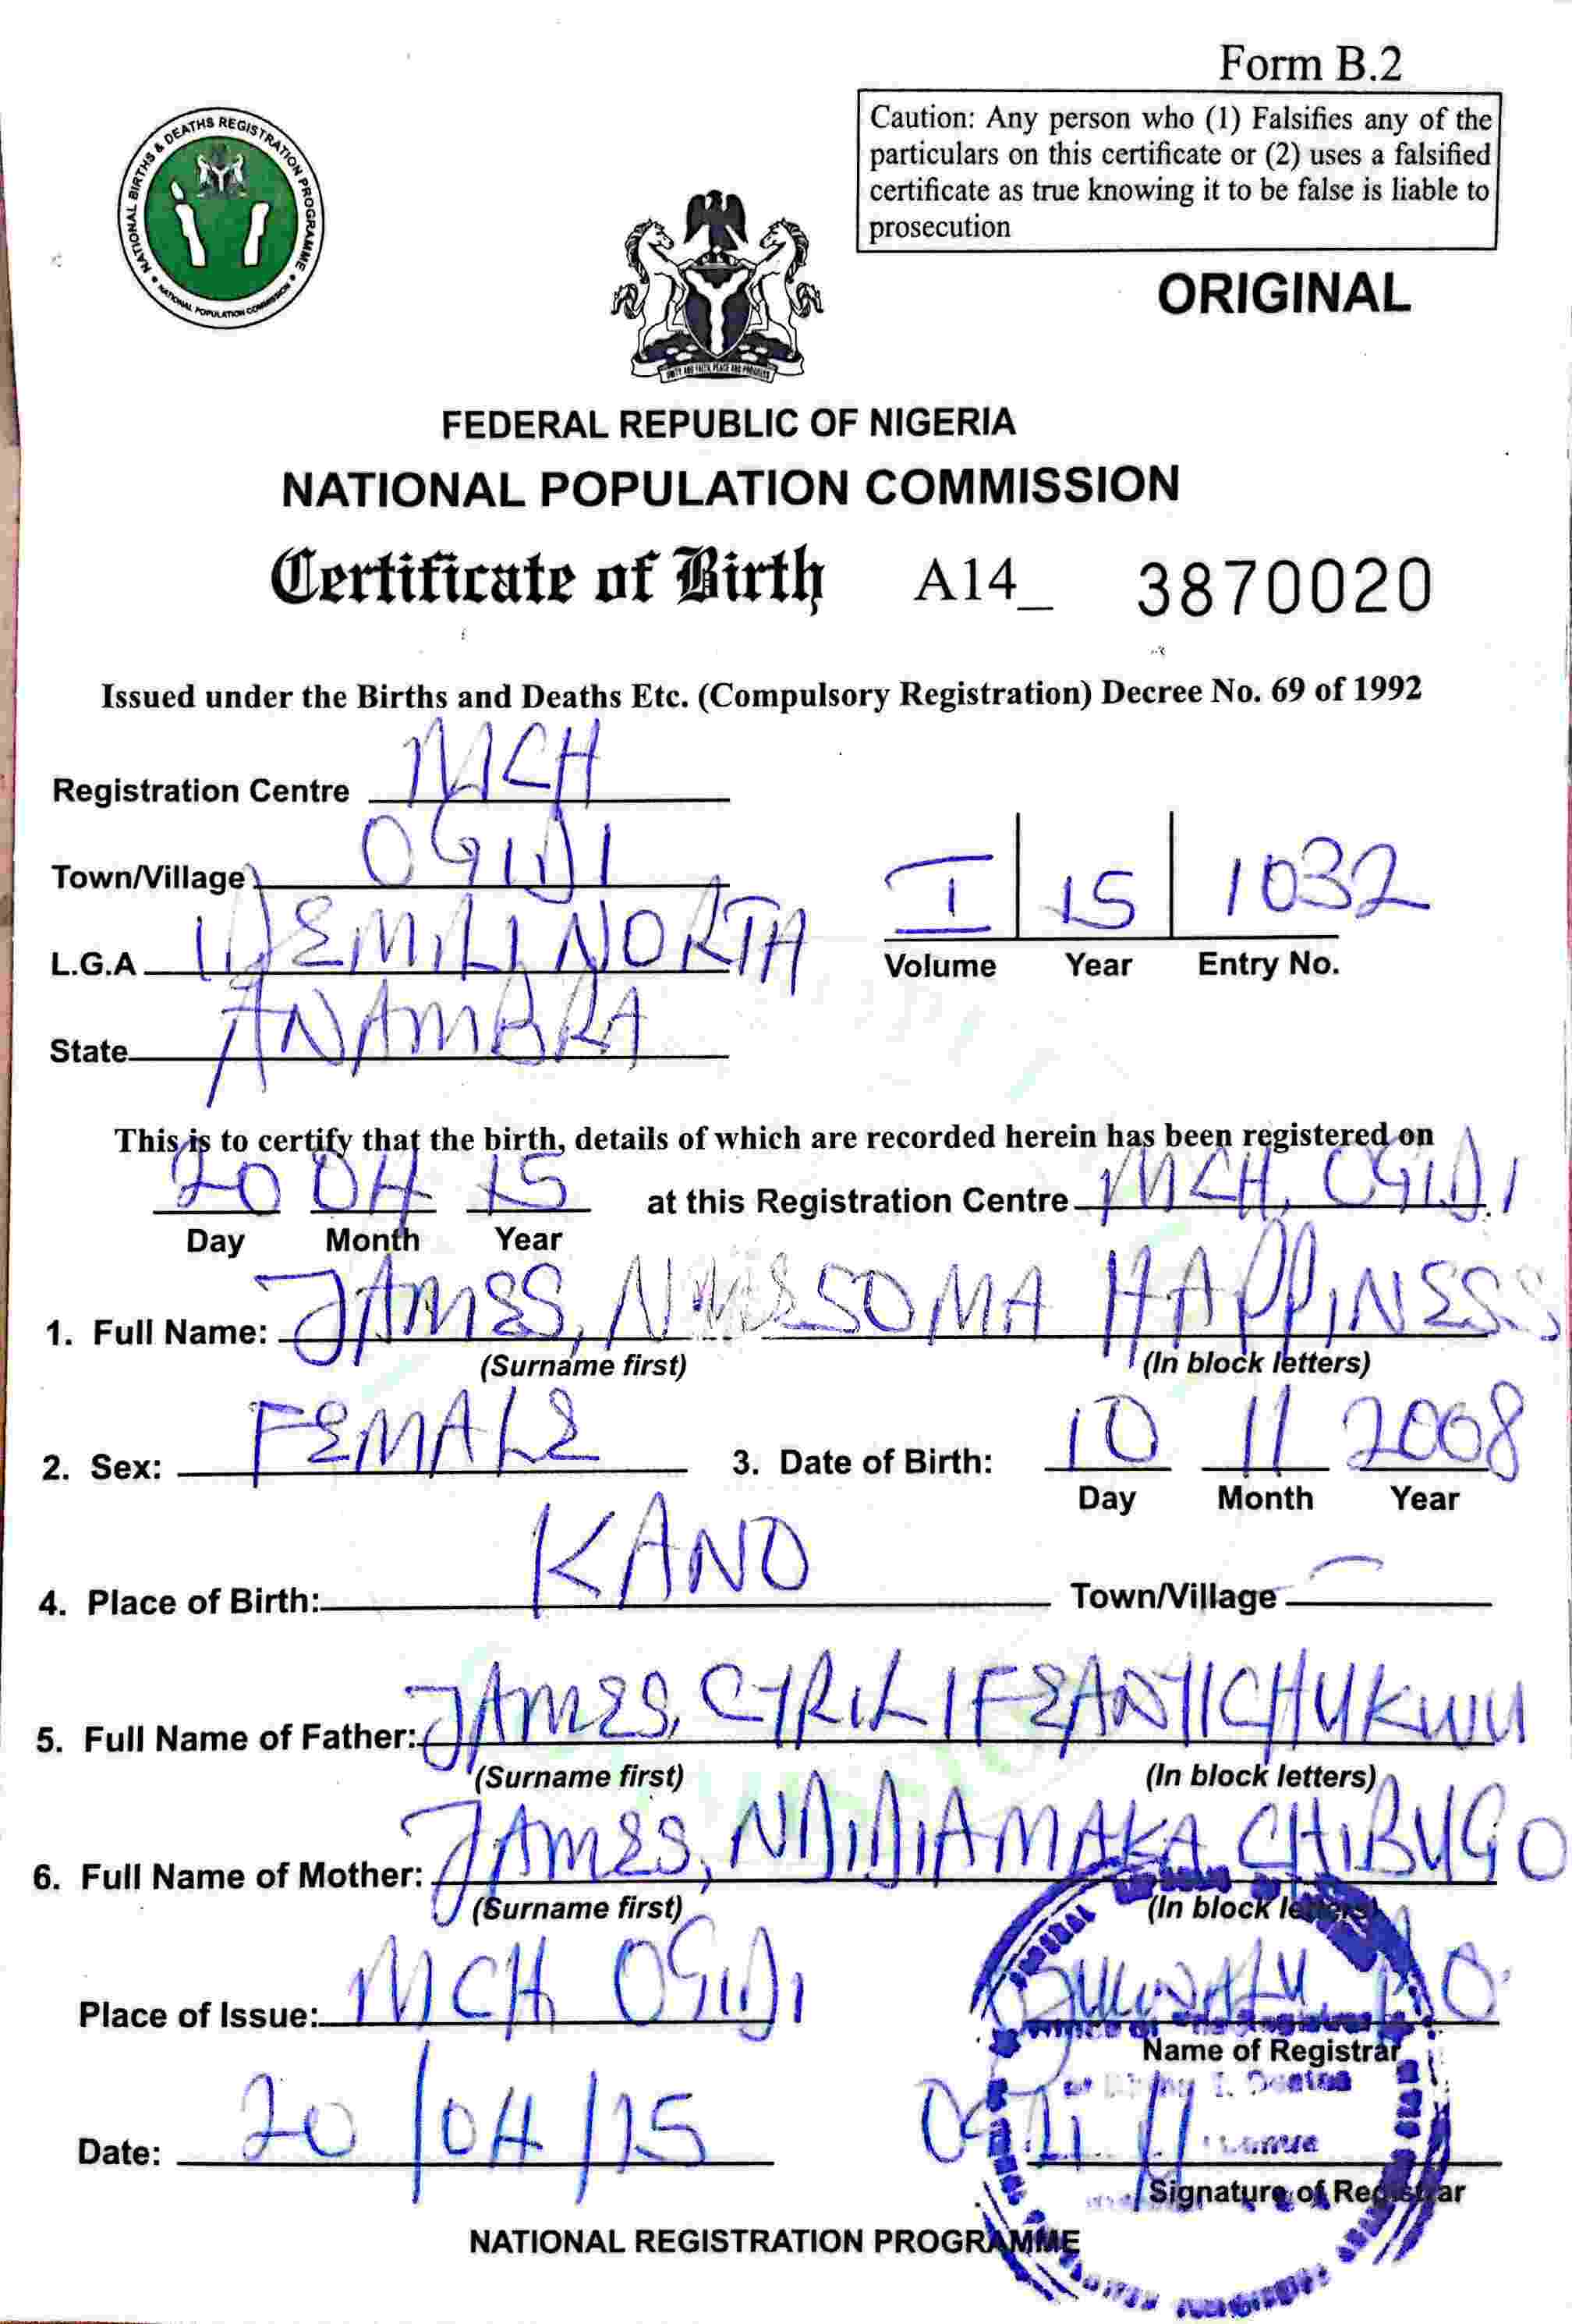 Form B.2
Caution: Any person who (1) Falsifies any of the
particulars on this certificate or (2) uses a falsified
certificate as true knowing it to be false is liable to
prosecution
NATIONAL BIRTHS & DEATHS REGISTRATION PROGRAMME
NATIONAL POPULATION COMMISSION
ORIGINAL
UNITY AND FAITH, PEACE AND PROGRESS
FEDERAL REPUBLIC OF NIGERIA
NATIONAL POPULATION COMMISSION
Certificate of Birth A14_ 3870020
Issued under the Births and Deaths Etc. (Compulsory Registration) Decree No. 69 of 1992
Registration Centre MCH
Town/Village OGIDI
L.G.A IDEMILI NORTH
State ANAMBRA
I 15 1032
Volume Year Entry No.
This is to certify that the birth, details of which are recorded herein has been registered on
20 04 15 at this Registration Centre MCH, OGIDI
Day Month Year
1. Full Name: JAMES, SOMA HAPPINESS
(Surname first) (In block letters)
2. Sex: FEMALE 3. Date of Birth: 10 11 2008
Day Month Year
4. Place of Birth: KANO Town/Village —
5. Full Name of Father: JAMES, CYRIL IFEANYICHUKWU
(Surname first) (In block letters)
6. Full Name of Mother: JAMES, NDIDIAMAKA CHIBUGO
(Surname first) (In block letters)
Place of Issue: MCH OGIDI
Name of Registrar
Date: 20/04/15
Signature of Registrar
NATIONAL REGISTRATION PROGRAMME